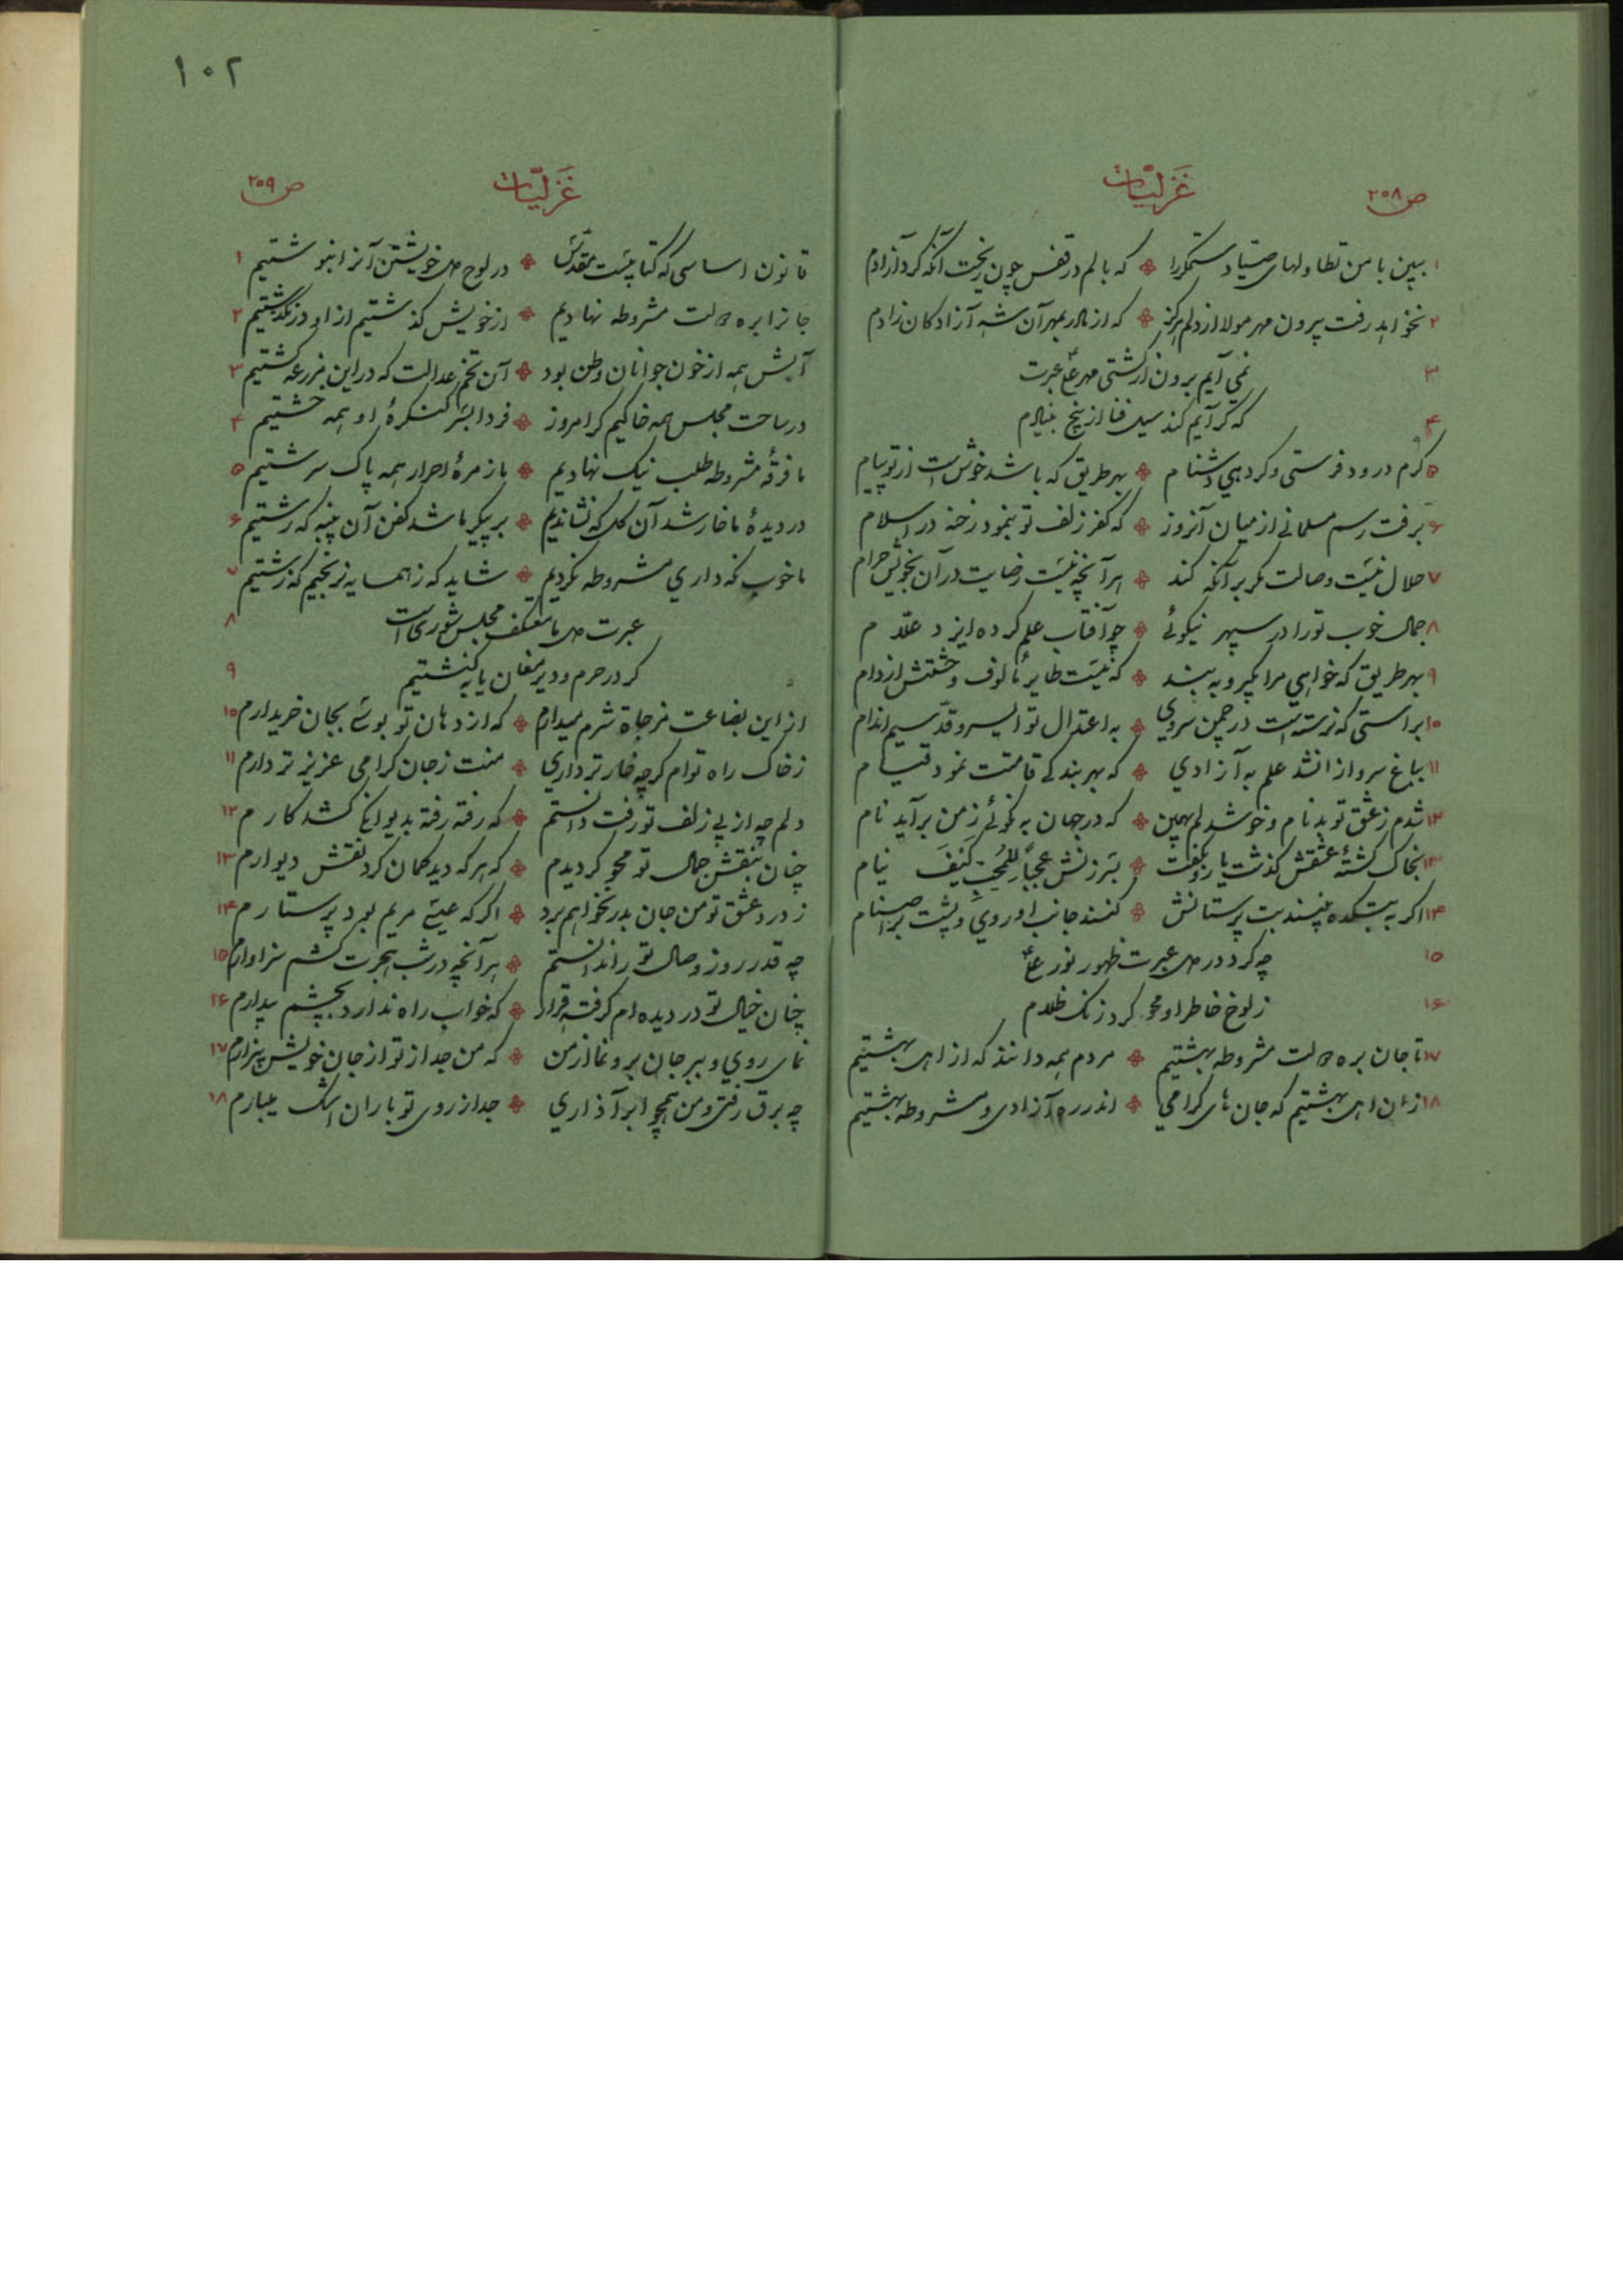 ۱۰۲
ص ۲۰۸
غزلیّات
۱ ببین با من تطاولهای صیّاد ستمگر را که بالم در قفس چون ریخت آنگه کرد آزادم
۲ نخواهد رفت بیرون مهر مولا از دلم هرگز که از مادر بمهر آن شه آزادکان زادم
۳ نمی آیم برون از کشتی مهر علی عبرت
۴ که گر آیم کند سیل فنا از بیخ بنیادم
۵ گرم درود فرستی و گر دهی دشنام بهر طریق که باشد خوش است از تو پیام
۶ برفت رسم مسلمانی از میان آنروز که کفر زلف تو بنمود رخنه در اسلام
۷ حلال نیست وصالت مگر بر آنکه کند هر آنچه نیست رضایت در آن بخویش حرام
۸ جمال خوب تو را در سپهر نیکوئی چو آفتاب علم کرده ایزد علّام
۹ بهر طریق که خواهی مرا بگیر و ببند که نیست طایر مألوف وحشتش از دام
۱۰ براستی که نرسته است در چمن سروی به اعتدال تو ای سرو قدّ سیم اندام
۱۱ بباغ سرو از آنشد علم به آزادی که بهر بندگی قامتت نمود قیام
۱۲ شدم ز عشق تو بدنام و خوشدلم بهمین که در جهان به نکوئی ز من برآید نام
۱۳ بخاک کشتهٔ عشقش گذشت یار و بگفت بسرزنش عجباً للمحب کیف ینام
۱۴ اگر به بتکده بینند بت پرستانش کنند جانب او روی و پشت بر اصنام
۱۵ چه کرد در دل عبرت ظهور نور علی
۱۶ ز لوح خاطر او محو کرد زنگ ظلام
۱۷ تا جان بره دولت مشروطه بهشتیم مردم همه دانند که از اهل بهشتیم
۱۸ زان اهل بهشتیم که جان های گرامی اندر ره آزادی و مشروطه بهشتیم
ص ۲۰۹
غزلیّات
قانون اساسی که کتابیست مقدّس در لوح دل خویشتن آنرا بنوشتیم ۱
جانرا بره دولت مشروطه نهادیم از خویش گذشتیم از او درنگذشتیم ۲
آبش همه از خون جوانان وطن بود آن تخم عدالت که در این مزرعه کشتیم ۳
در ساحت مجلس همه خاکیم گر امروز فردا بسر کنگرهٔ او همه خشتیم ۴
ما فرقهٔ مشروطه طلب نیک نهادیم ما زمرهٔ احرار همه پاک سرشتیم ۵
در دیدهٔ ما خار شد آن گل که نشاندیم بر پیکر ما شد کفن آن پنبه که رشتیم ۶
ما خوب نگه داری مشروطه نکردیم شاید که ز همسایه نرنجیم که زشتیم ۷
عبرت دل ما معتکف مجلس شوری است ۸
گر در حرم و دیر مغان یا به کنشتیم ۹
از این بضاعت مزجاة شرم میدارم که از دهان تو بوسی بجان خریدارم ۱۰
ز خاک راه توام گرچه خارتر داری منت ز جان گرامی عزیزتر دارم ۱۱
دلم چه از پی زلف تو رفت دانستم که رفته رفته بدیوانگی کشد کارم ۱۲
چنان بنقش جمال تو محو گردیدم که هر که دید گمان کرد نقش دیوارم ۱۳
ز درد عشق تو من جان بدر نخواهم برد اگر که عیسی مریم بود پرستارم ۱۴
چه قدر روز وصال تو را ندانستم هر آنچه در شب هجرت کشم سزاوارم ۱۵
چنان خیال تو در دیده ام گرفته قرار که خواب راه ندارد بچشم بیدارم ۱۶
نمای روی و ببر جان برو نما از من که من جدا از تو از جان خویش بیزارم ۱۷
چه برق رفتی و من همچو ابر آذاری جدا از روی تو باران اشک میبارم ۱۸